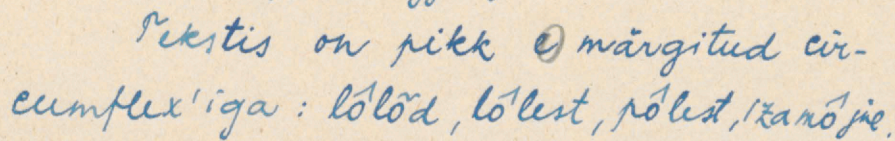 Tekstis on pikk e märgitud cir-
cumflex'iga: lôlõd, lôlest, pôlest, izamô jne.